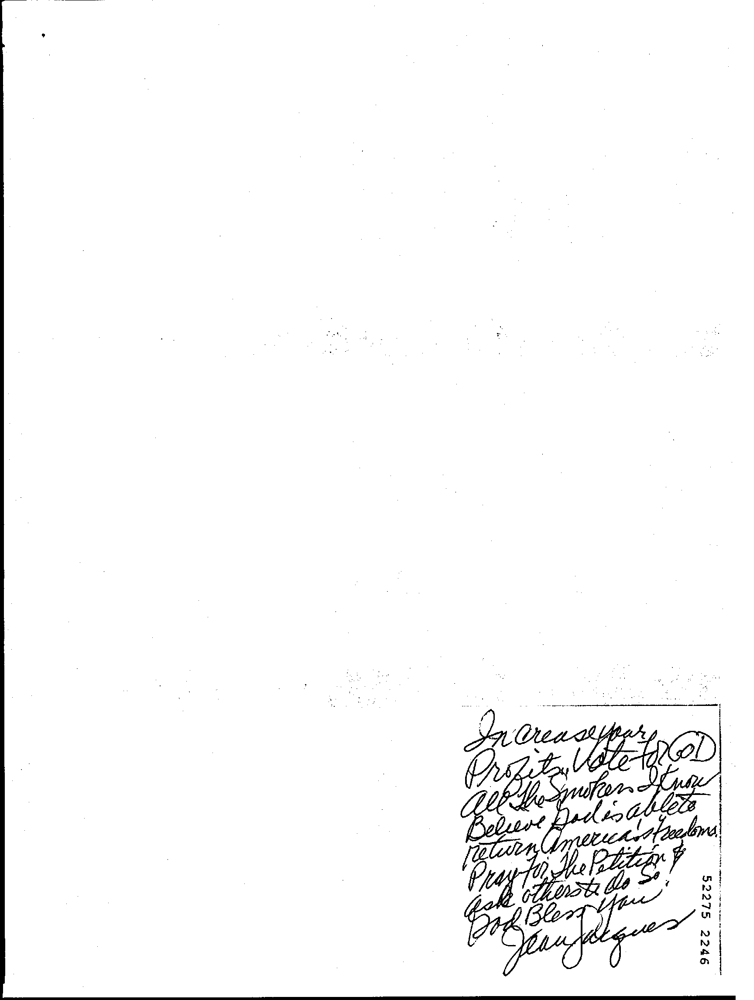 Increase your
Profits, Vote for GOD
All The Smokers I Know
Believe God is able to
return America's Freedoms.
Pray for The Petition &
ask others to do So!
God Bless You!
Jean Jacques
52275 2246